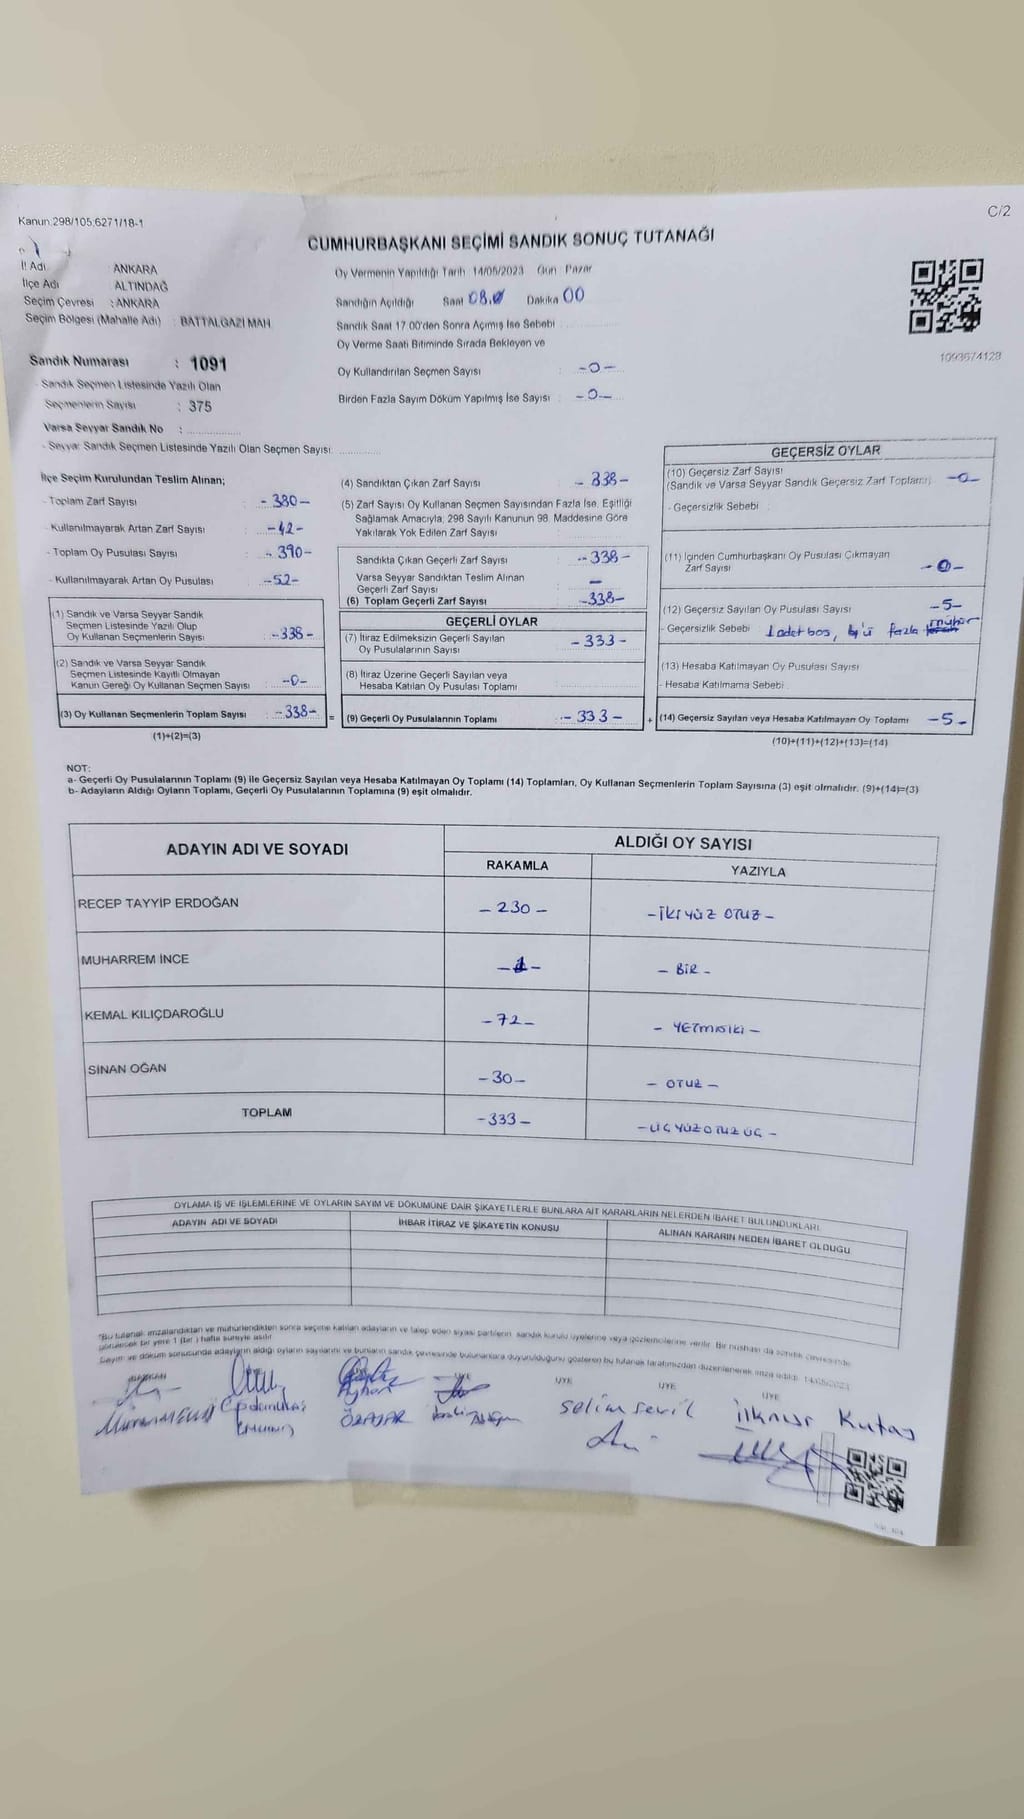 Kanun:298/105;6271/18-1
C/2
CUMHURBAŞKANI SEÇİMİ SANDIK SONUÇ TUTANAĞI
İl Adı ANKARA
İlçe Adı ALTINDAĞ
Seçim Çevresi : ANKARA
Seçim Bölgesi (Mahalle Adı) : BATTALGAZİ MAH
Oy Vermenin Yapıldığı Tarih 14/05/2023 Gün Pazar
Sandığın Açıldığı Saat 08.0 Dakika 00
Sandık Saat 17.00'den Sonra Açılmış İse Sebebi
Oy Verme Saati Bitiminde Sırada Bekleyen ve
Oy Kullandırılan Seçmen Sayısı -0-
Birden Fazla Sayım Döküm Yapılmış İse Sayısı -0-
1093674123
Sandık Numarası : 1091
- Sandık Seçmen Listesinde Yazılı Olan
Seçmenlerin Sayısı : 375
Varsa Seyyar Sandık No :
- Seyyar Sandık Seçmen Listesinde Yazılı Olan Seçmen Sayısı:
İlçe Seçim Kurulundan Teslim Alınan;
- Toplam Zarf Sayısı : -380-
- Kullanılmayarak Artan Zarf Sayısı : -42-
- Toplam Oy Pusulası Sayısı : -390-
- Kullanılmayarak Artan Oy Pusulası : -52-
(1) Sandık ve Varsa Seyyar Sandık
Seçmen Listesinde Yazılı Olup
Oy Kullanan Seçmenlerin Sayısı : -338-
(2) Sandık ve Varsa Seyyar Sandık
Seçmen Listesinde Kayıtlı Olmayan
Kanun Gereği Oy Kullanan Seçmen Sayısı -0-
(3) Oy Kullanan Seçmenlerin Toplam Sayısı : -338-
(1)+(2)=(3)
(4) Sandıktan Çıkan Zarf Sayısı : -338-
(5) Zarf Sayısı Oy Kullanan Seçmen Sayısından Fazla İse, Eşitliği
Sağlamak Amacıyla, 298 Sayılı Kanunun 98. Maddesine Göre
Yakılarak Yok Edilen Zarf Sayısı
Sandıkta Çıkan Geçerli Zarf Sayısı : -338-
Varsa Seyyar Sandıktan Teslim Alınan
Geçerli Zarf Sayısı -
(6) Toplam Geçerli Zarf Sayısı -338-
GEÇERLİ OYLAR
(7) İtiraz Edilmeksizin Geçerli Sayılan
Oy Pusulalarının Sayısı : -333-
(8) İtiraz Üzerine Geçerli Sayılan veya
Hesaba Katılan Oy Pusulası Toplamı
= (9) Geçerli Oy Pusulalarının Toplamı : -333-
GEÇERSİZ OYLAR
(10) Geçersiz Zarf Sayısı
(Sandık ve Varsa Seyyar Sandık Geçersiz Zarf Toplamı) -0-
- Geçersizlik Sebebi
(11) İçinden Cumhurbaşkanı Oy Pusulası Çıkmayan
Zarf Sayısı -0-
(12) Geçersiz Sayılan Oy Pusulası Sayısı -5-
- Geçersizlik Sebebi 1 adet boş, 4'ü fazla mühür
(13) Hesaba Katılmayan Oy Pusulası Sayısı
- Hesaba Katılmama Sebebi
+ (14) Geçersiz Sayılan veya Hesaba Katılmayan Oy Toplamı -5-
(10)+(11)+(12)+(13)=(14)
NOT:
a- Geçerli Oy Pusulalarının Toplamı (9) ile Geçersiz Sayılan veya Hesaba Katılmayan Oy Toplamı (14) Toplamları, Oy Kullanan Seçmenlerin Toplam Sayısına (3) eşit olmalıdır. (9)+(14)=(3)
b- Adayların Aldığı Oyların Toplamı, Geçerli Oy Pusulalarının Toplamına (9) eşit olmalıdır.
ADAYIN ADI VE SOYADI
ALDIĞI OY SAYISI
RAKAMLA YAZIYLA
RECEP TAYYİP ERDOĞAN -230- -İKİ YÜZ OTUZ-
MUHARREM İNCE -1- -BİR-
KEMAL KILIÇDAROĞLU -72- -YETMİŞİKİ-
SİNAN OĞAN -30- -OTUZ-
TOPLAM -333- -ÜÇ YÜZ OTUZ ÜÇ-
OYLAMA İŞ VE İŞLEMLERİNE VE OYLARIN SAYIM VE DÖKÜMÜNE DAİR ŞİKAYETLERLE BUNLARA AİT KARARLARIN NELERDEN İBARET BULUNDUKLARI
ADAYIN ADI VE SOYADI İHBAR İTİRAZ VE ŞİKAYETİN KONUSU ALINAN KARARIN NEDEN İBARET OLDUĞU
*Bu tutanak imzalandıktan ve mühürlendikten sonra seçime katılan adayların ve talep eden siyasi partilerin sandık kurulu üyelerine veya gözlemcilerine verilir. Bir nüshası da sandık çevresinde
görülecek bir yere 1 (bir) hafta süreyle asılır.
Sayım ve döküm sonucunda adayların aldığı oyların sayılarını ve bunların sandık çevresinde bulunanlara duyurulduğunu gösteren bu tutanak tarafımızdan düzenlenerek imza edildi. 14/05/2023
BAŞKAN ÜYE ÜYE ÜYE ÜYE
Ayhan
ÖZAÇAR
Selim Sevil
İlknur Kutaş